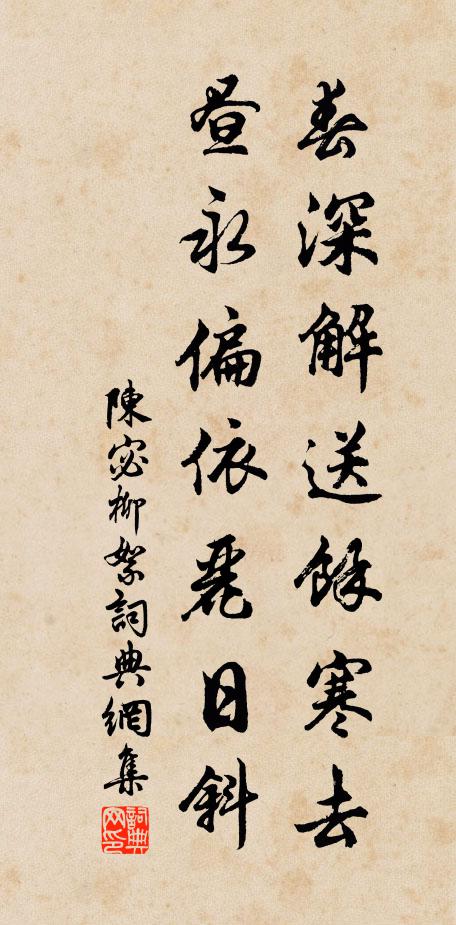 春深解送餘寒去
晝永偏依麗日斜
陳宓柳絮詞典網集
詞典網印